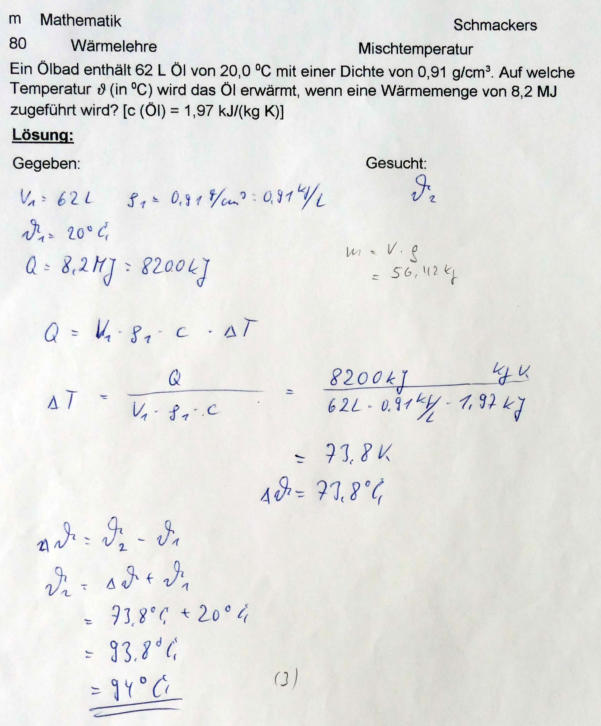 m Mathematik Schmackers
80 Wärmelehre Mischtemperatur
Ein Ölbad enthält 62 L Öl von 20,0 ⁰C mit einer Dichte von 0,91 g/cm³. Auf welche
Temperatur ϑ (in ⁰C) wird das Öl erwärmt, wenn eine Wärmemenge von 8,2 MJ
zugeführt wird? [c (Öl) = 1,97 kJ/(kg K)]
Lösung:
Gegeben: Gesucht:
V₁ = 62 L ρ₁ = 0,91 g/cm³ = 0,91 kg/L ϑ₂
ϑ₁ = 20°C
Q = 8,2 MJ = 8200 kJ
m = V · ρ
= 56,42 kg
Q = V₁ · ρ₁ · c · ΔT
ΔT = Q / (V₁ · ρ₁ · c) = 8200 kJ kg K / (62 L · 0.91 kg/L · 1,97 kJ)
= 73,8 K
Δϑ = 73,8°C
Δϑ = ϑ₂ - ϑ₁
ϑ₂ = Δϑ + ϑ₁
= 73,8°C + 20°C
= 93,8°C
= 94°C (3)